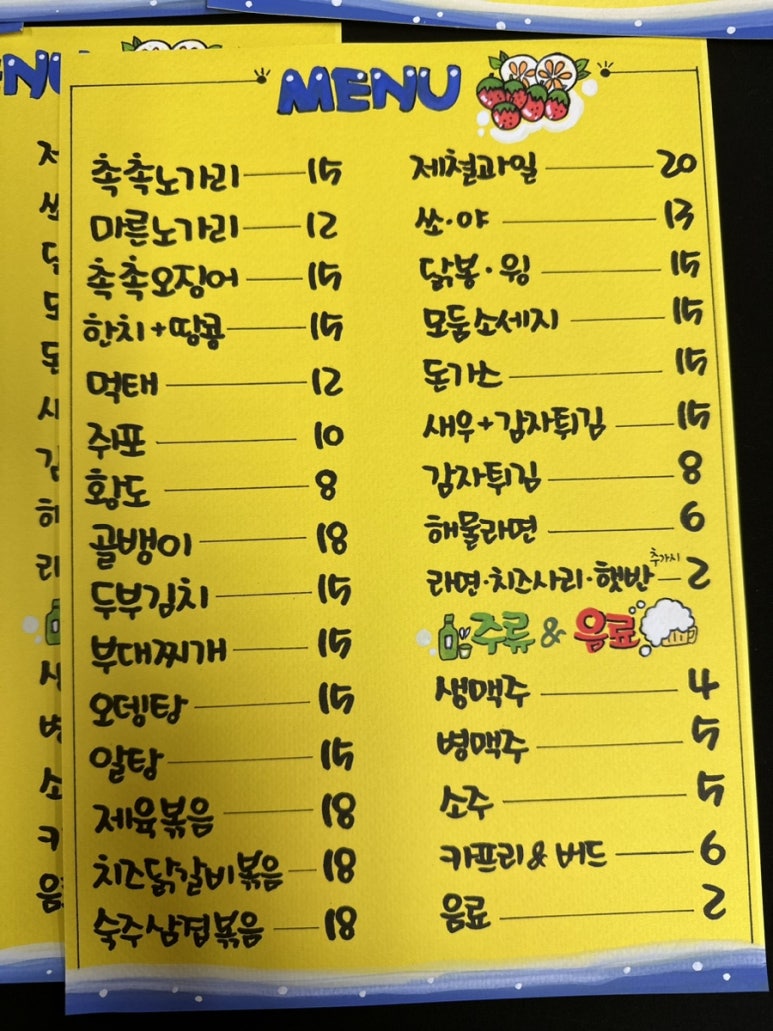 MENU
촉촉노가리 15
마른노가리 12
촉촉오징어 15
한치+땅콩 15
먹태 12
쥐포 10
황도 8
골뱅이 18
두부김치 15
부대찌개 15
오뎅탕 15
알탕 15
제육볶음 18
치즈닭갈비볶음 18
숙주삼겹볶음 18
제철과일 20
쏘·야 13
닭봉·윙 15
모둠소세지 15
돈가스 15
새우+감자튀김 15
감자튀김 8
해물라면 6
라면·치즈사리·햇반 추가시 2
주류 & 음료
생맥주 4
병맥주 5
소주 5
카프리 & 버드 6
음료 2